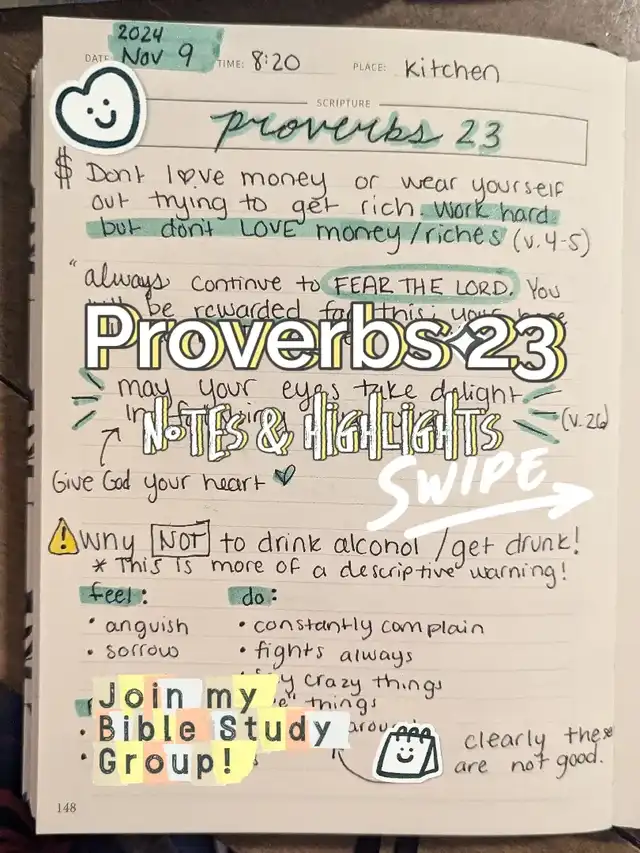 2024
DATE: Nov 9 TIME: 8:20 PLACE: Kitchen
SCRIPTURE
proverbs 23
$ Dont love money or wear yourself
out trying to get rich. Work hard
but don't LOVE money/riches (v. 4-5)
"always continue to FEAR THE LORD. You
will be rewarded for this; your hope
Proverbs 23
may your eyes take delight
(v. 26)
NOTES & HIGHLIGHTS
SWIPE
Give God your heart
Why NOT to drink alcohol /get drunk!
* This is more of a descriptive warning!
feel: do:
• anguish • constantly complain
• sorrow • fights always
crazy things
things
Join my
Bible Study
Group!
clearly these
are not good.
148